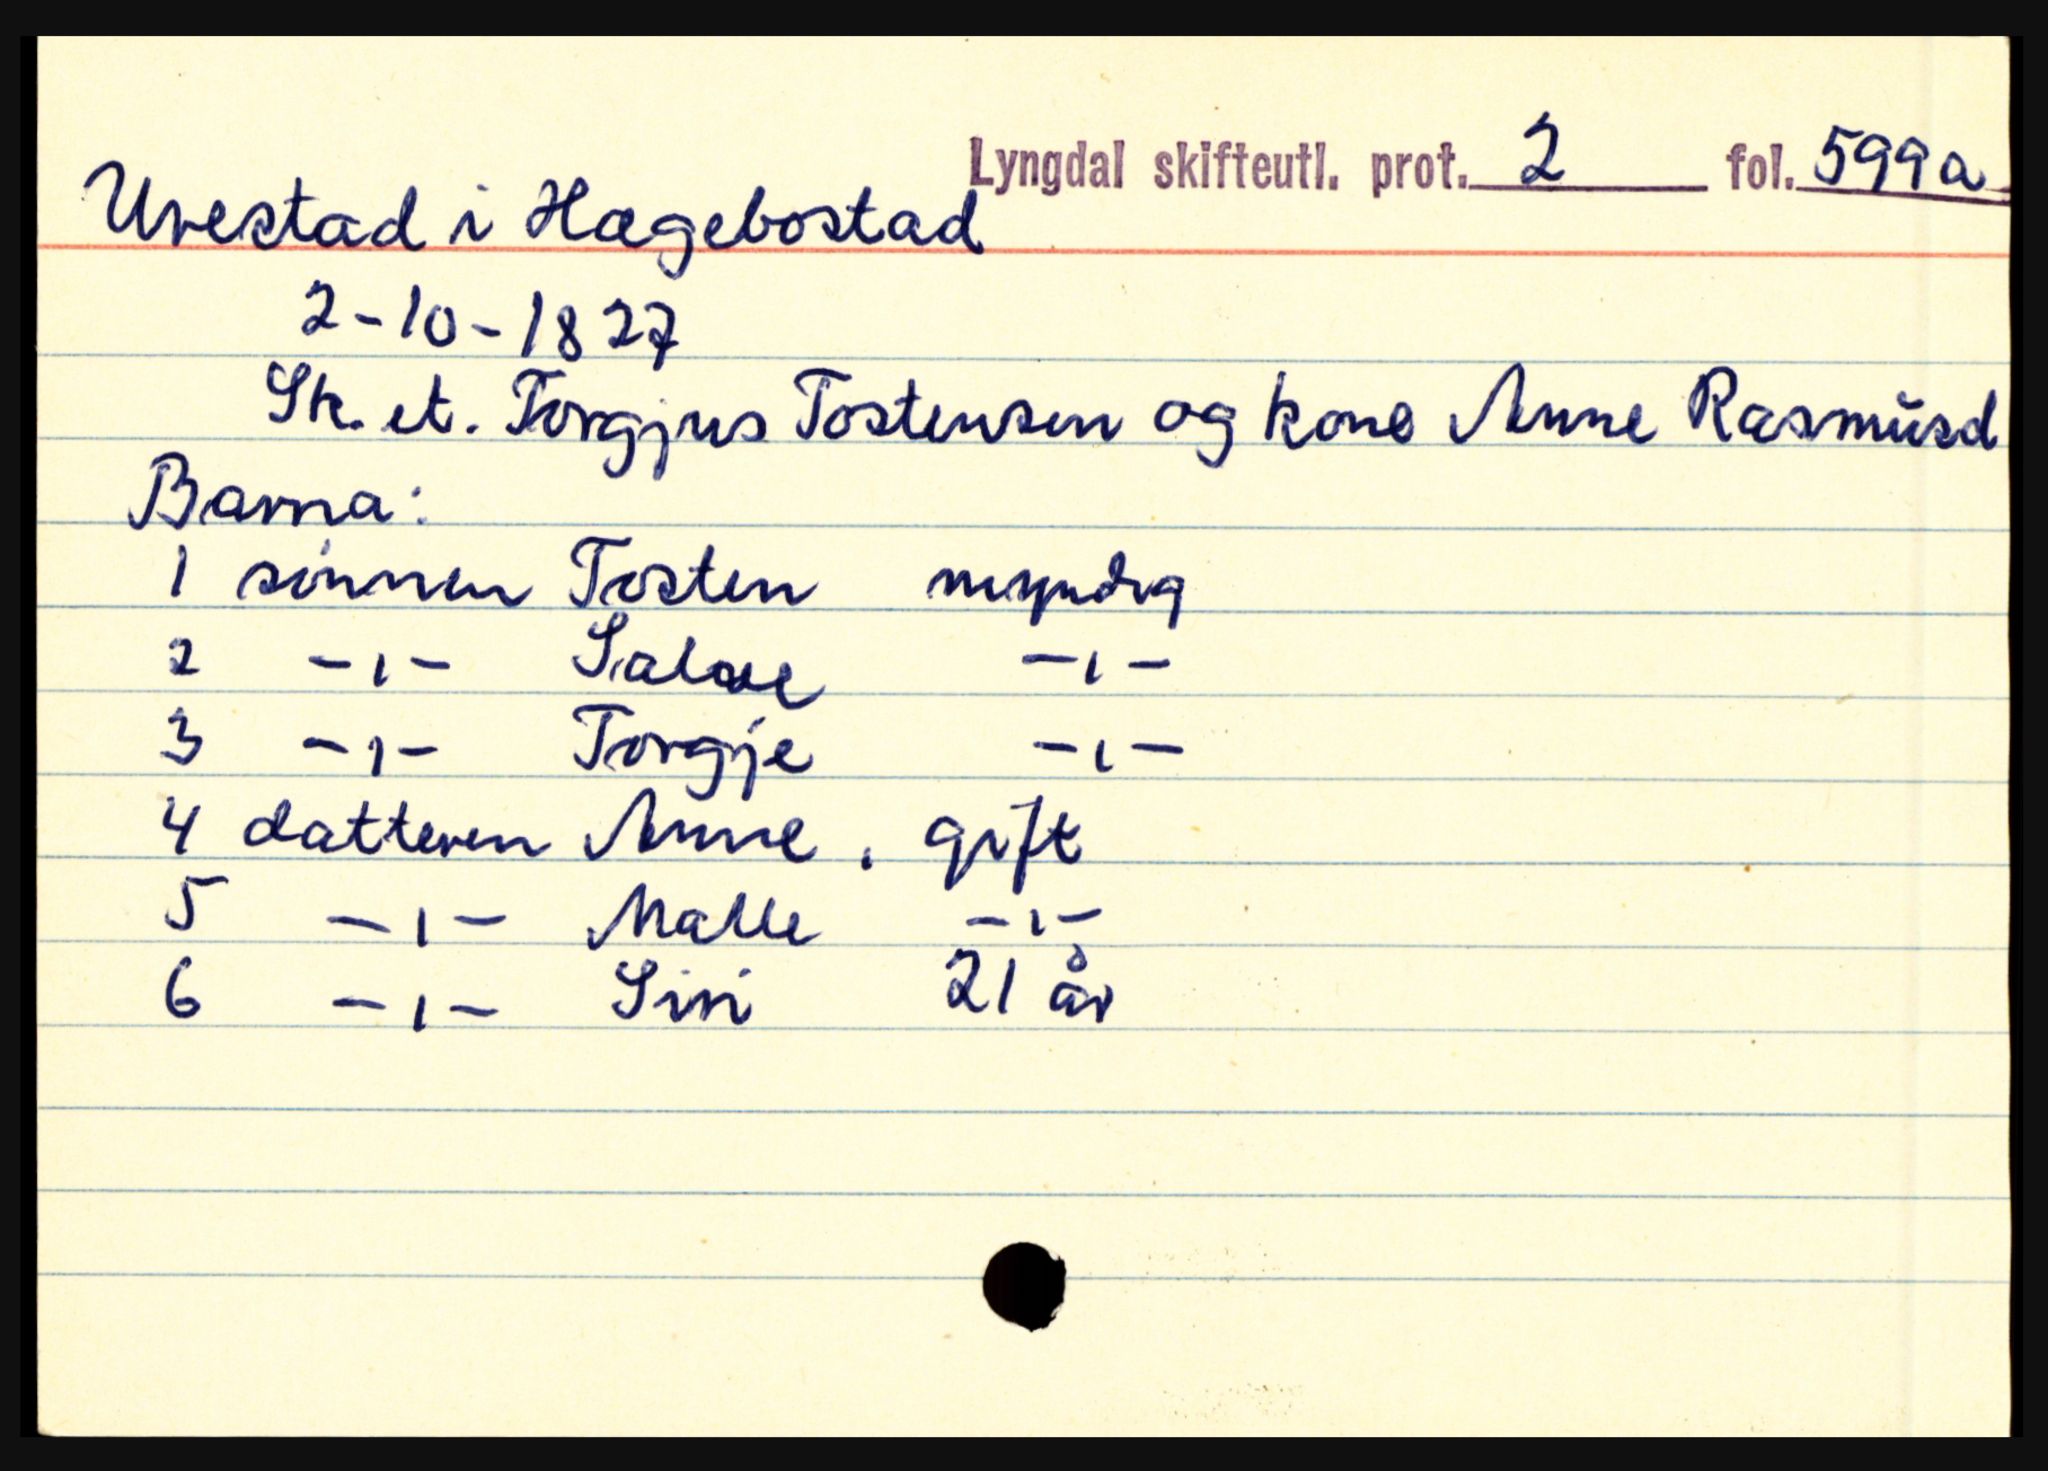 Lyngdal skifteutl. prot. 2 fol. 599a
Urestad i Hægebostad
2-10-1827
Sk. et. Torgjus Tostensen og kone Anne Rasmusd
Barna:
1 sønnen Tosten myndig
2 -ı- Salve -ı-
3 -ı- Torgje -ı-
4 datteren Anne, gift
5 -ı- Malle -ı-
6 -ı- Siri 21 år